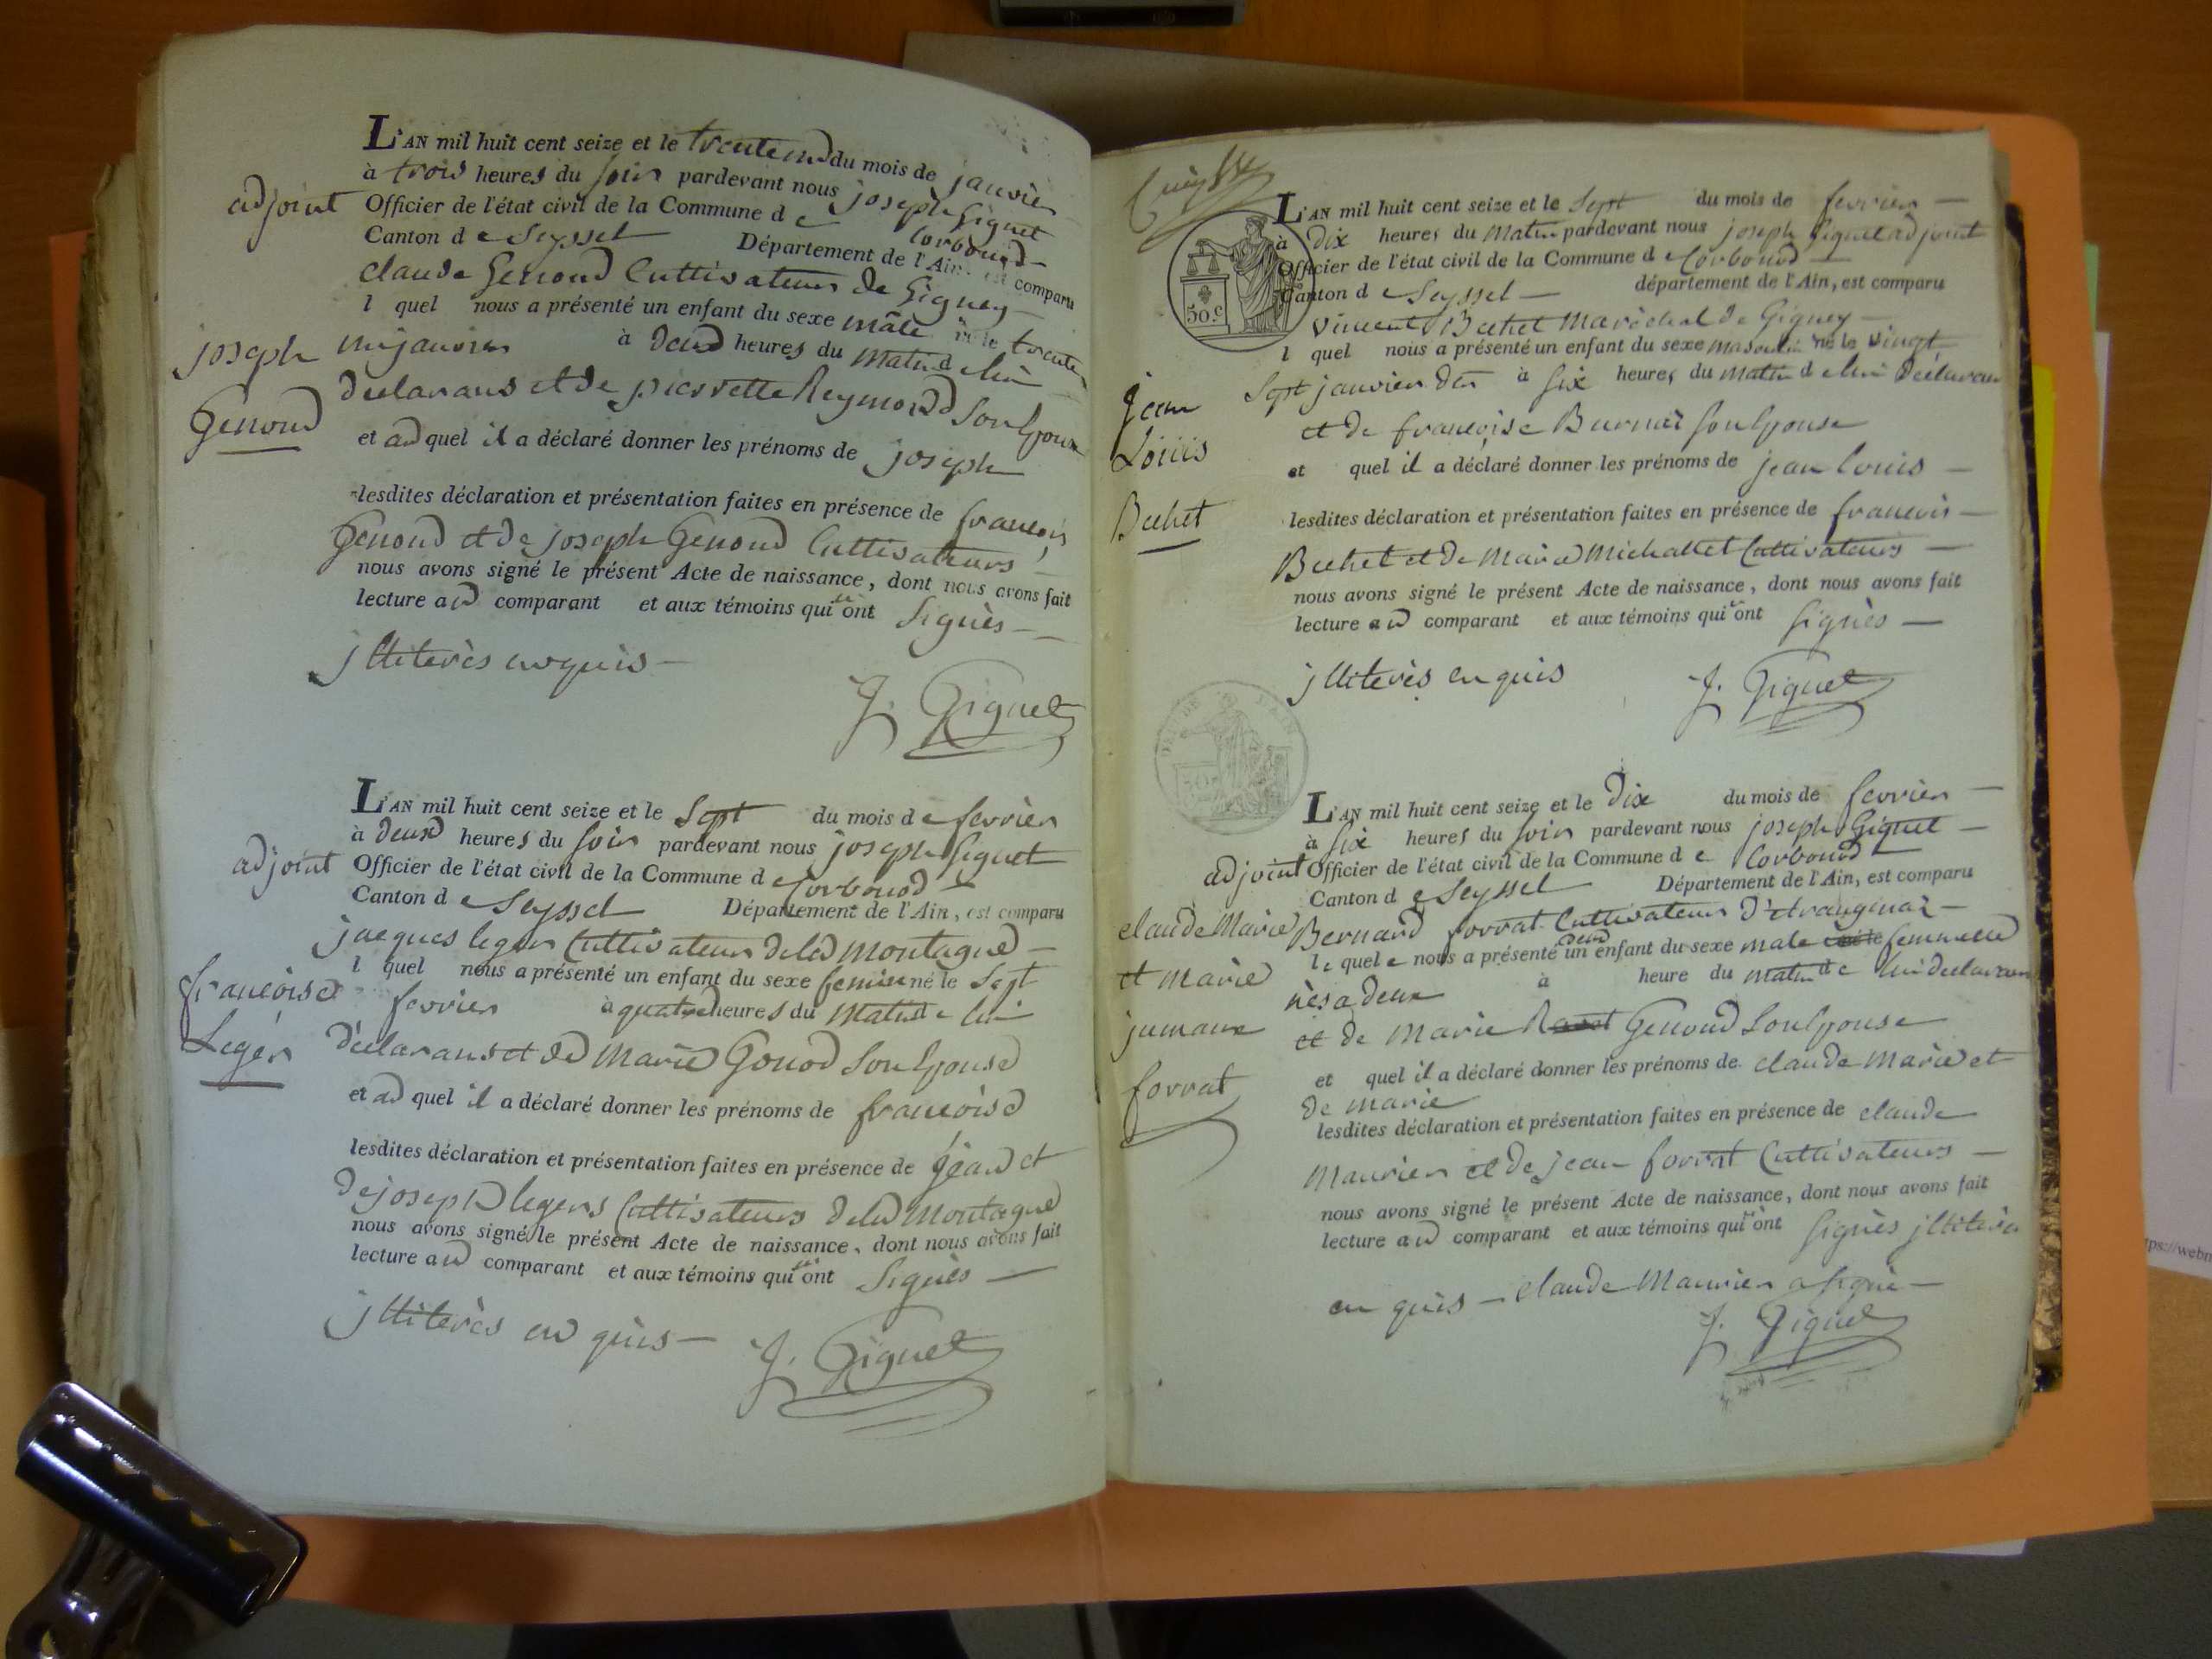 L'AN mil huit cent seize et le trente un du mois de janvier
à trois heures du soir pardevant nous joseph Giguet
adjoint Officier de l'état civil de la Commune de Corbonod
Canton de Seyssel Département de l'Ain, est comparu
claude Genoud Cultivateur de Gigney
l quel nous a présenté un enfant du sexe mâle né le trente
un janvier à deux heures du matin de lui
declarans et de pierrette Reymond Son Epouse
et au quel il a déclaré donner les prénoms de joseph
joseph
Genoud
lesdites déclaration et présentation faites en présence de francois
Genoud et de joseph Genoud Cultivateurs
nous avons signé le présent Acte de naissance, dont nous avons fait
lecture au comparant et aux témoins qui n'ont Signès
jlliterès enquis
J. Giguet
L'AN mil huit cent seize et le Sept du mois de fevrier
à deux heures du soir pardevant nous joseph Giguet
adjoint Officier de l'état civil de la Commune de Corbonod
Canton de Seyssel Département de l'Ain, est comparu
jacques leger Cultivateur de la montagne
l quel nous a présenté un enfant du sexe femin né le Sept
fevrier à quatre heures du matin de lui
declarans et de marie Gonod Son Epouse
et au quel il a déclaré donner les prénoms de francoise
francoise
Leger
lesdites déclaration et présentation faites en présence de jean et
de joseph legers Cultivateurs de la montagne
nous avons signé le présent Acte de naissance, dont nous avons fait
lecture au comparant et aux témoins qui n'ont Signès
jlliterès en quis
J. Giguet
30.c
L'AN mil huit cent seize et le Sept du mois de fevrier
à dix heures du matin pardevant nous joseph Giguet adjoint
Officier de l'état civil de la Commune de Corbonod
Canton de Seyssel département de l'Ain, est comparu
vincent Bechet marèchal de Gigney
l quel nous a présenté un enfant du sexe masculin né le vingt
Sept janvier der à Six heures du matin de lui declaran
et de francoise Burnai Son Epouse
et quel il a déclaré donner les prénoms de jean louis
jean
Louis
Bechet
lesdites déclaration et présentation faites en présence de francois
Bechet et de marie michallet Cultivateurs
nous avons signé le présent Acte de naissance, dont nous avons fait
lecture au comparant et aux témoins qui n'ont signès
jlliterès en quis
J. Giguet
L'AN mil huit cent seize et le Dix du mois de fevrier
à Six heures du soir pardevant nous joseph Giguet
adjoint Officier de l'état civil de la Commune de Corbonod
Canton de Seyssel Département de l'Ain, est comparu
Bernard forrat Cultivateur D'etranginaz
le quel nous a présenté un deux enfant du sexe male né le femmelle
nès a deux à heure du matin de lui declaran
et de marie Genoud Son Epouse
et quel il a déclaré donner les prénoms de claude marie et
de marie
claude marie
et marie
jumaux
forrat
lesdites déclaration et présentation faites en présence de claude
Maurier et de jean forrat Cultivateurs
nous avons signé le présent Acte de naissance, dont nous avons fait
lecture au comparant et aux témoins qui n'ont signès jlliterès
en quis claude Maurier a signè
J. Giguet